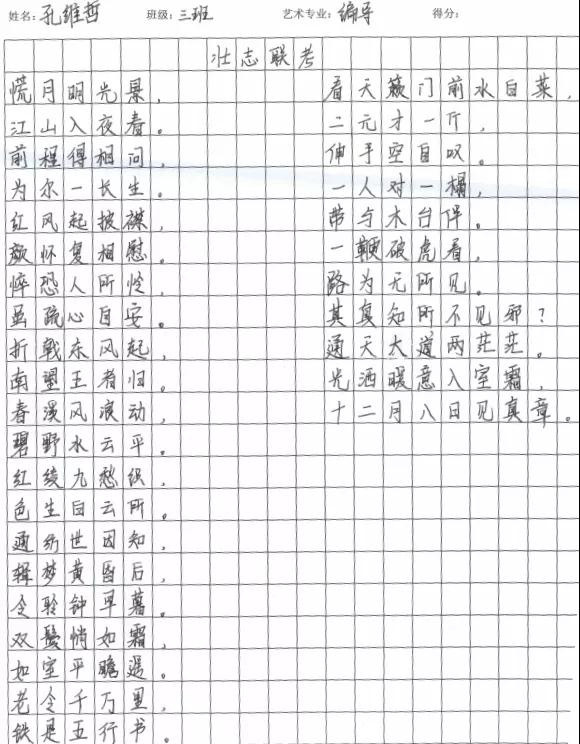 姓名：孔维哲 班级：三班 艺术专业：编导 得分：
壮志联考
慌月明光景，
江山入夜春。
前程得相问，
为尔一长生。
红风起披襟，
颜怀复相慰。
悴恐人所怜，
虽疏心自安。
折戟东风起，
南望王者归。
春漫风浪动，
碧野水云平。
红绫九愁织，
色生白云所。
通纺世因知，
辑梦黄昏后，
令聆钟早暮。
双鬓悄如霜，
如室平瞻遥。
老令千万里，
铁是五行书。
看天簌门前水白菜，
二元才一斤，
伸手空自叹。
一人对一榻，
带与木台伴。
一鞭破虎看，
路为无所见。
其真知所不见邪？
通天大道两茫茫。
光洒暖意入室霜，
十二月八日见真章。